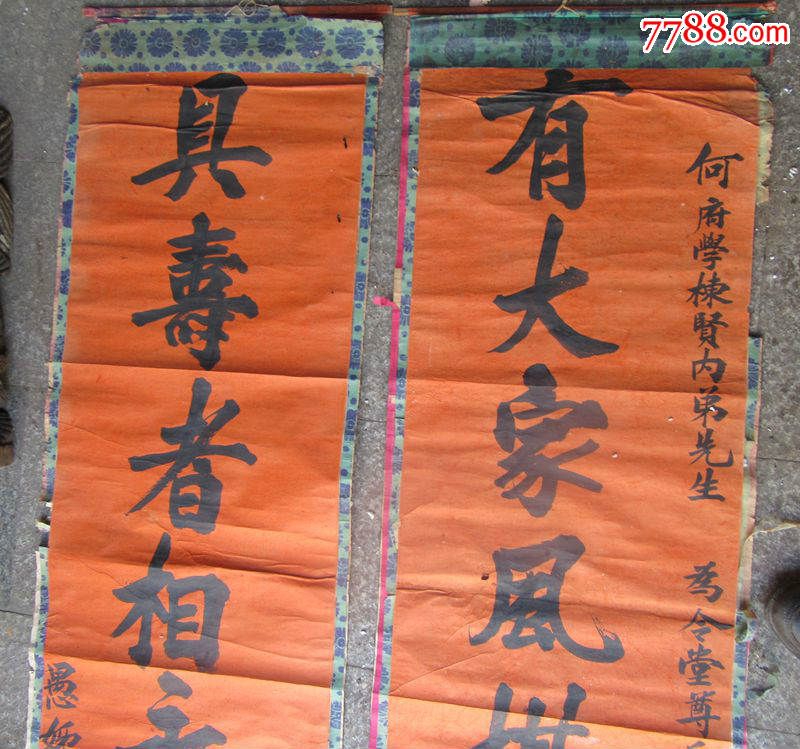 7788.com
何府學棟賢內弟先生 為令堂尊
有大家風
具壽者相
愚